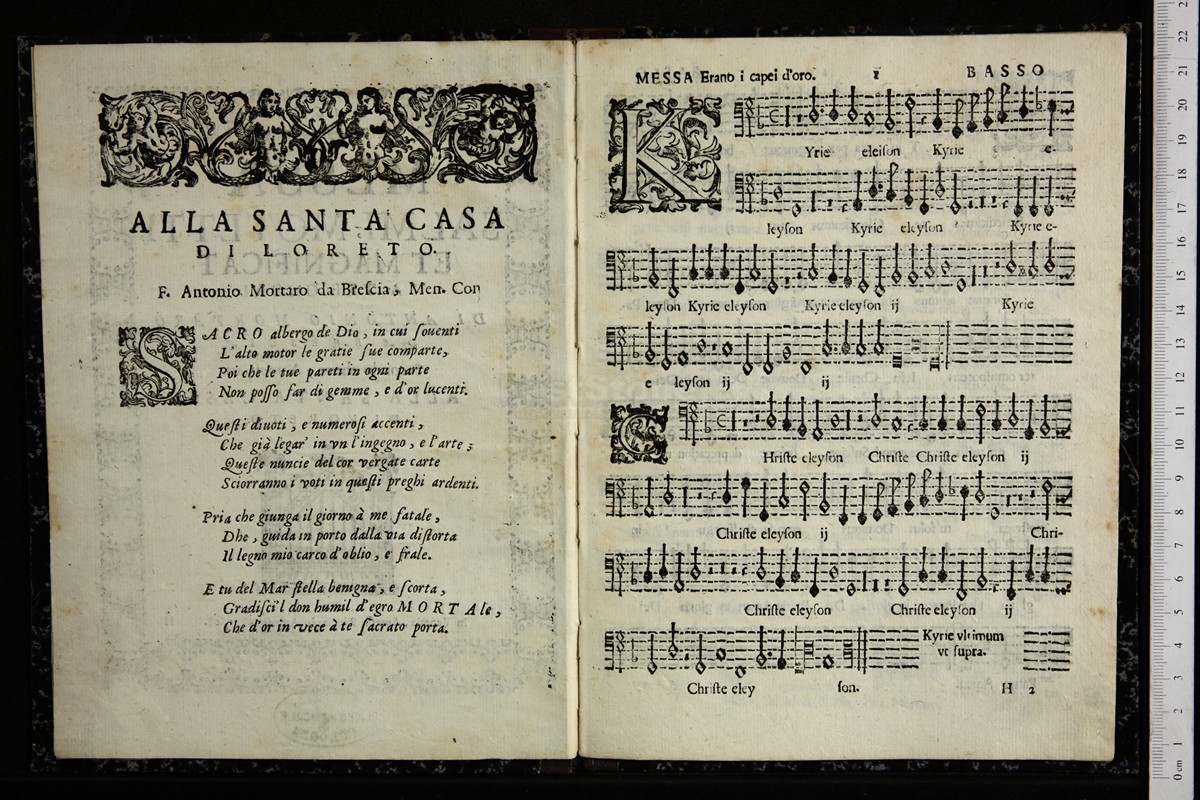 ALLA SANTA CASA
DI LORETO.
F. Antonio Mortaro da Brescia, Men. Con
SACRO albergo de Dio, in cui souenti
L'alto motor le gratie sue comparte,
Poi che le tue pareti in ogni parte
Non posso far di gemme, e d'or lucenti.
Questi diuoti, e numerosi accenti,
Che già legar' in vn l'ingegno, e l'arte;
Queste nuncie del cor vergate carte
Sciorranno i voti in questi preghi ardenti.
Pria che giunga il giorno à me fatale,
Dhe, guida in porto dalla via distorta
Il legno mio carco d'oblio, e frale.
E tu del Mar stella benigna, e scorta,
Gradisci'l don humil d'egro MORTAle,
Che d'or in vece à te sacrato porta.
MESSA Erano i capei d'oro. 1 BASSO
KYrie eleison Kyrie e-
leyson Kyrie eleyson Kyrie e-
leyson Kyrie eleyson Kyrie eleyson ij Kyrie
e leyson ij ij
CHriste eleyson Christe Christe eleyson ij
Christe eleyson ij Chri-
Christe eleyson Christe eleyson ij
Kyrie vltimum
vt supra.
Christe eley son.
H 2
0 cm 1 2 3 4 5 6 7 8 9 10 11 12 13 14 15 16 17 18 19 20 21 22